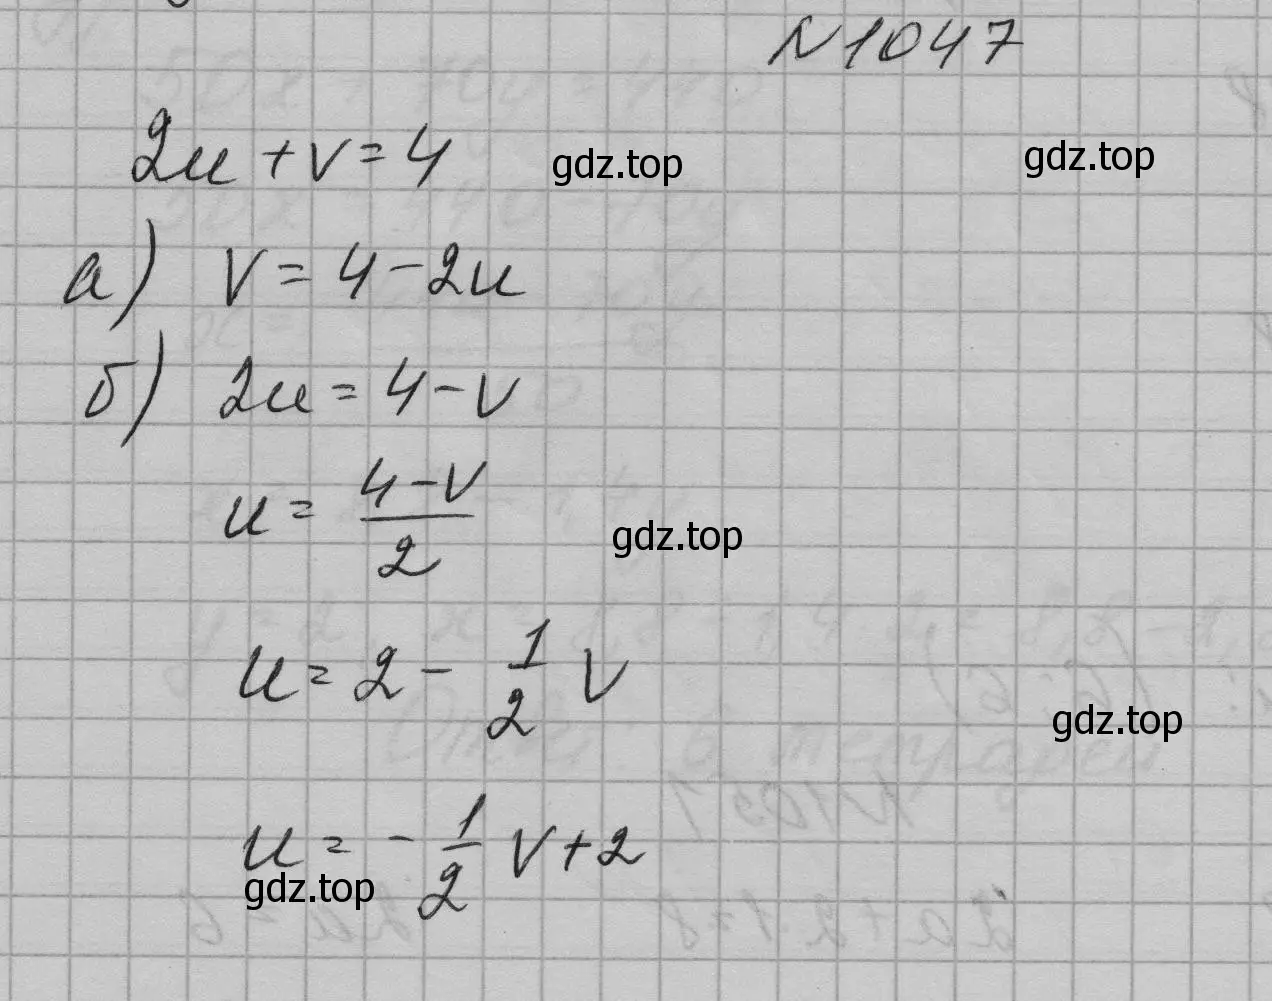 №1047
2u + v = 4
gdz.top
gdz.top
а) v = 4 - 2u
б) 2u = 4 - v
u = \frac{4-v}{2}
gdz.top
u = 2 - \frac{1}{2} v
gdz.top
u = -\frac{1}{2} v + 2
gdz.top